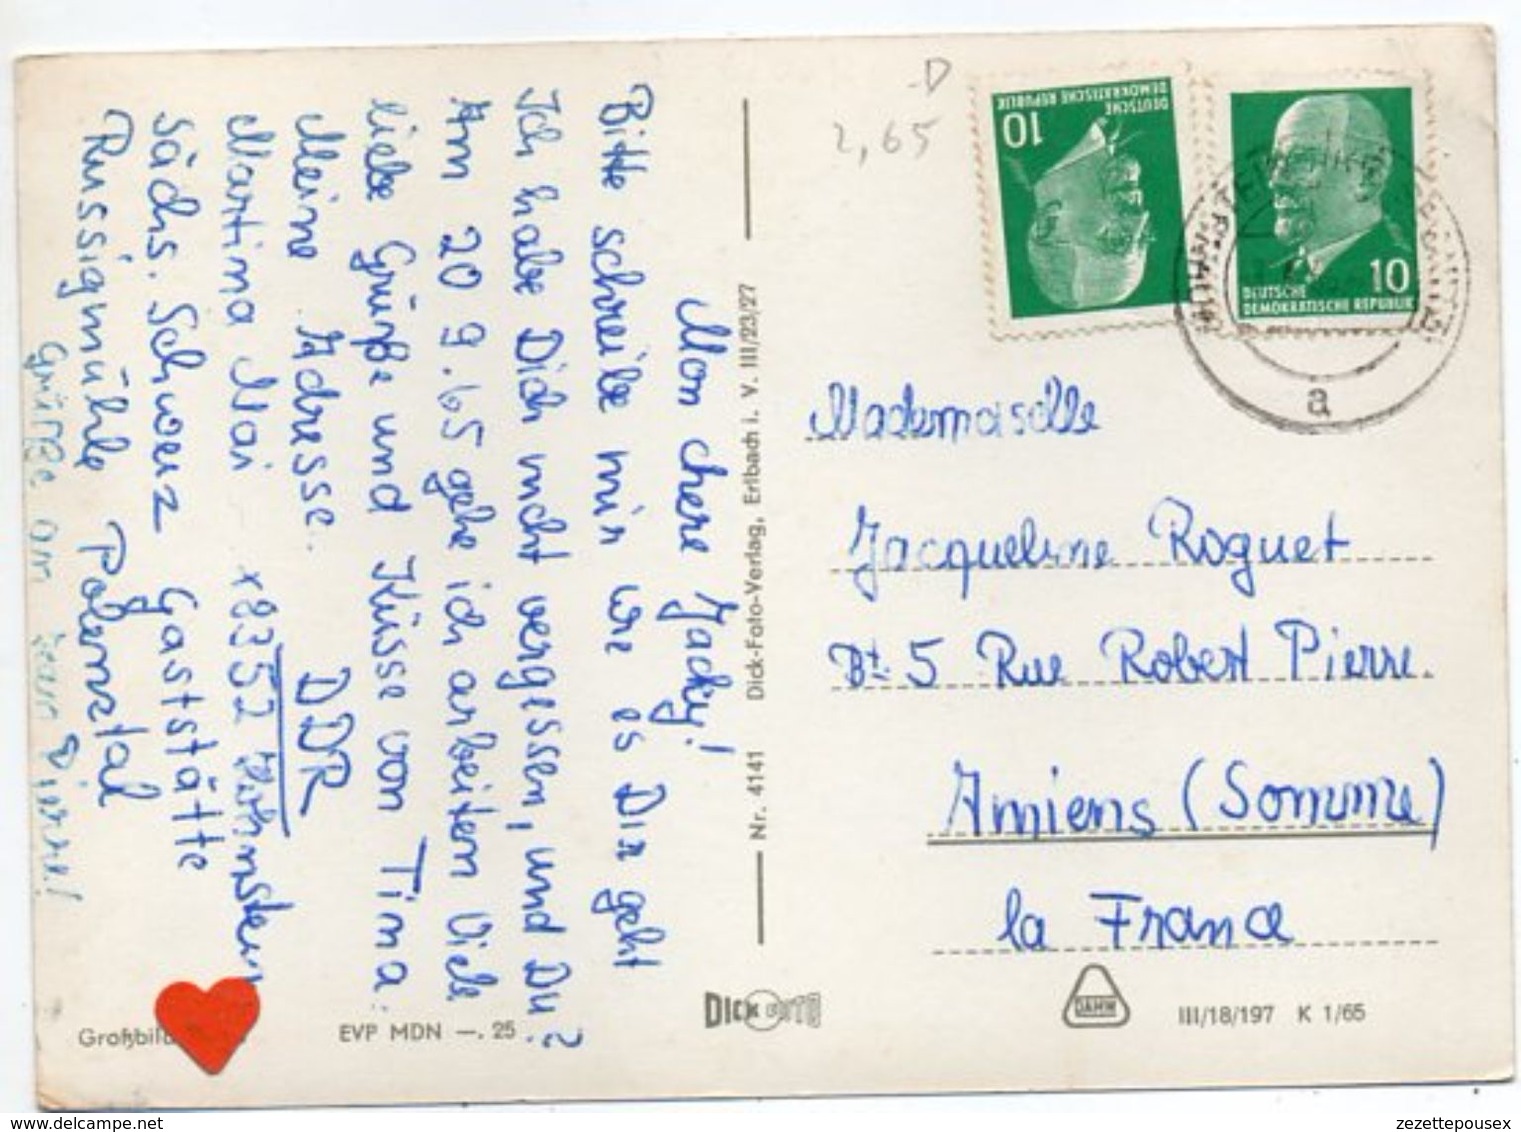 Mon chere Jacky!
Bitte schreibe mir wie es Dir geht
Ich habe Dich nicht vergessen, und Du?
Am 20 9.65 gehe ich arbeiten Viele
liebe Grüße und Küsse von Tima.
Meine Adresse. DDR
Martina Mai 8352
Sächs. Schweiz Gaststätte
Russigmühle Polenztal
Grüße an Jean Pierre!
Großbild
EVP MDN —. 25
Nr. 4141 Dick-Foto-Verlag, Erlbach i. V. III/23/27
DICK FOTO
D
2,65
DEUTSCHE
DEMOKRATISCHE REPUBLIK
10
10
DEUTSCHE
DEMOKRATISCHE REPUBLIK
a
Mademoiselle
Jacqueline Roguet
Bt. 5 Rue Robert Pierre.
Amiens (Somme)
la France
DAHW
III/18/197 K 1/65
zezettepousex